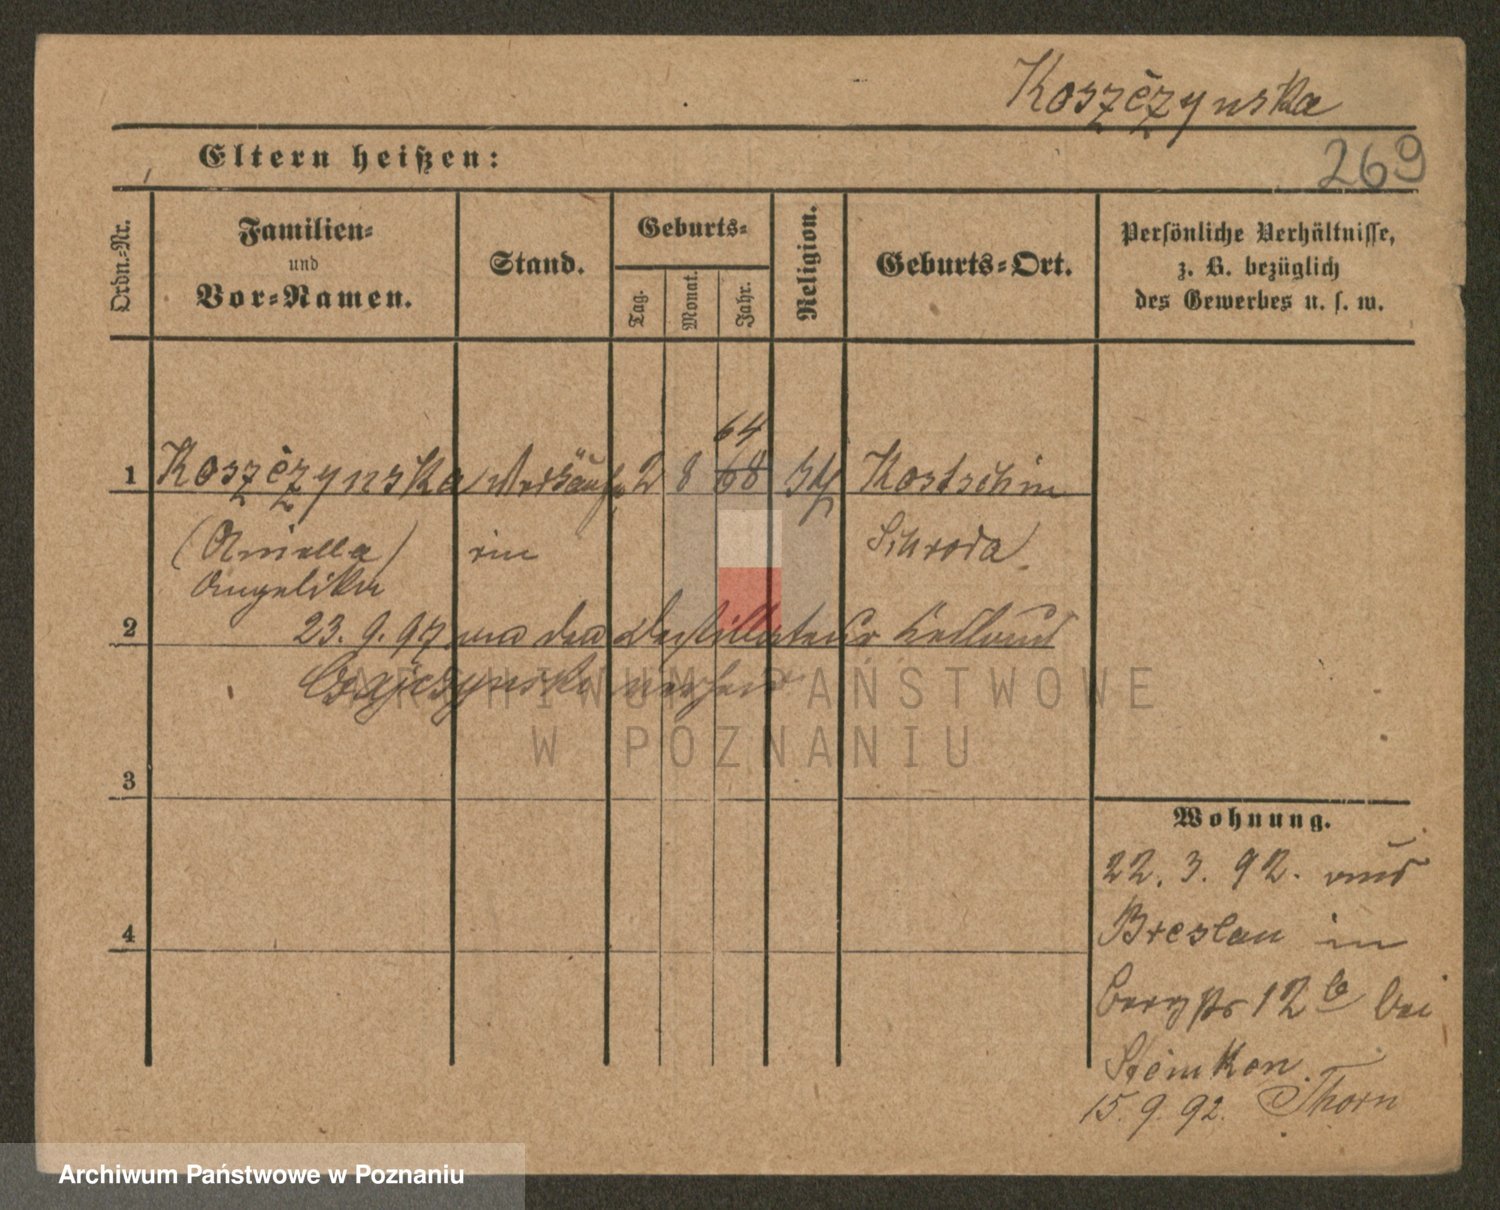 Koszczynska
269
Eltern heißen:
Ordn.-Nr.
Familien-
und
Vor-Namen.
Stand.
Geburts-
Tag.
Monat.
Jahr.
Religion.
Geburts-Ort.
Persönliche Verhältnisse,
z. B. bezüglich
des Gewerbes u. s. w.
64
1 Koszczynska Verkäufe 2 8 68 kth Kostschin
(Aniella) rin Schroda
Angelika
23. 9. 97 den Destillateur
2
ARCHIWUM PAŃSTWOWE
W POZNANIU
3
4
Wohnung.
22. 3. 92. aus
Breslau in
Bergstr 12b bei
15. 9. 92. Thorn
Archiwum Państwowe w Poznaniu